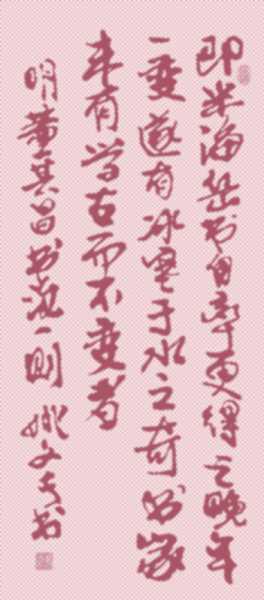 即米海岳书自率更得之晚年
一變遂有冰寒于水之奇书家
未有学古而不變者
明董其昌书论一則 姚文书